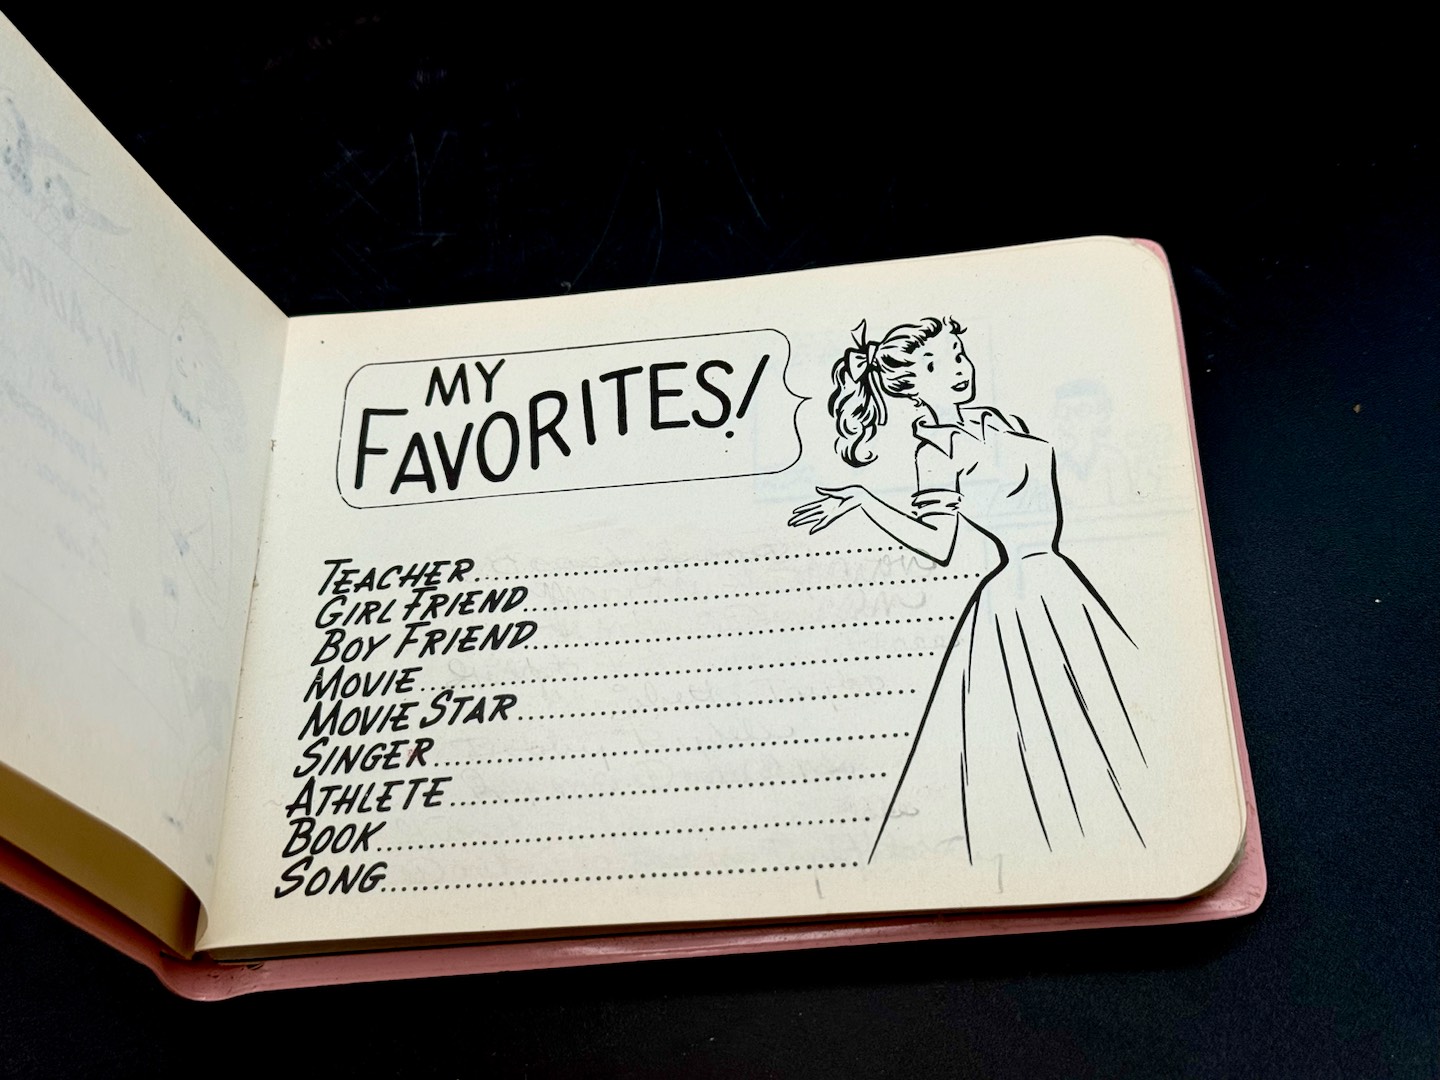 MY
FAVORITES!
TEACHER
GIRL FRIEND
BOY FRIEND
MOVIE
MOVIE STAR
SINGER
ATHLETE
BOOK
SONG